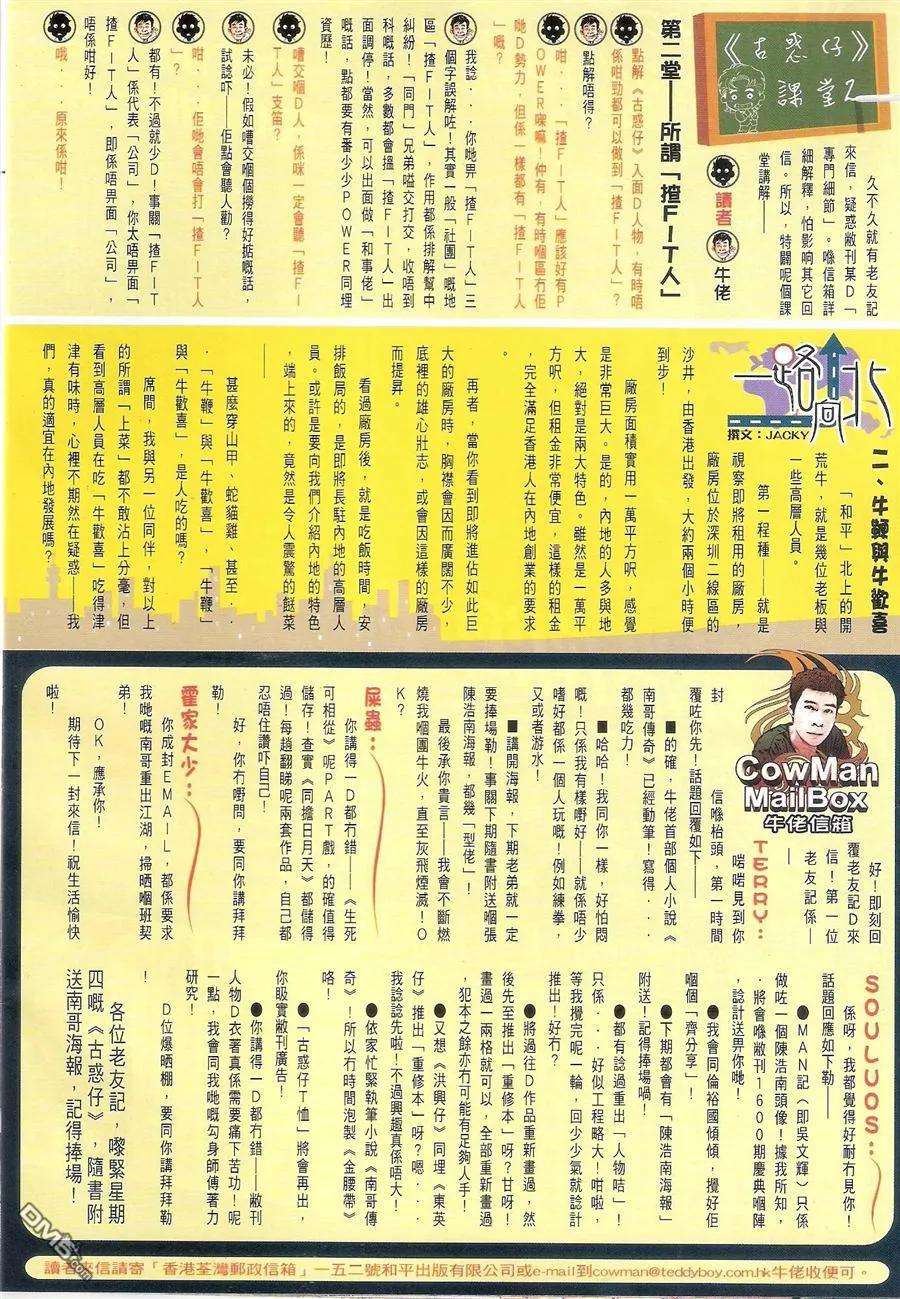 《古惑仔》
課堂2
久不久就有老友記
來信，疑惑敝刊某D「
專門細節」。喺信箱詳
細解釋，怕影响其它回
信。所以，特闢呢個課
堂講解——
讀者
牛佬
第二堂——所謂「揸FIT人」
點解《古惑仔》入面D人物，有時唔
係咁勁都可以做到「揸FIT人」？
點解唔得？
咁．．．「揸FIT人」應該好有P
OWER㗎嘛！仲有，有時嗰區冇佢
哋D勢力，但係一樣都有「揸FIT人
」嘅？
我諗．．．你哋畀「揸FIT人」三
個字誤解咗！其實一般「社團」嘅地
區「揸FIT人」，作用都係排解幫中
糾紛！「同門」兄弟嗌交打交，收唔到
科嘅話，多數都會搵「揸FIT人」出
面調停！當然，可以出面做「和事佬」
嘅話，點都要有番少少POWER同埋
資歷！
嘈交嗰D人，係咪一定會聽「揸FI
T人」支笛？
未必！假如嘈交嗰個撈得好掂嘅話，
試諗吓——佢點會聽人勸？
咁．．．佢哋會唔會打「揸FIT人
」？
都有！不過就少D！事關「揸FIT
人」係代表「公司」，你太唔畀面「
揸FIT人」，即係唔畀面「公司」，
唔係咁好！
哦．．．原來係咁！
一路向北
撰文：JACKY
二、牛鞭與牛歡喜
「和平」北上的開
荒牛，就是幾位老板與
一些高層人員。
第一程種——就是
視察即將租用的廠房，
廠房位於深圳二線區的
沙井，由香港出發，大約兩個小時便
到步！
廠房面積實用一萬平方呎，感覺
是非常巨大。是的，內地的人多與地
大，絕對是兩大特色。雖然是一萬平
方呎，但租金非常便宜，這樣的租金
，完全滿足香港人在內地創業的要求
。
再者，當你看到即將進佔如此巨
大的廠房時，胸襟會因而廣闊不少，
底裡的雄心壯志，或會因這樣的廠房
而提昇。
看過廠房後，就是吃飯時間，安
排飯局的，是即將長駐內地的高層人
員。或許是要向我們介紹內地的特色
，端上來的，竟然是令人震驚的餸菜
——
甚麼穿山甲、蛇貓雞、甚至．．
．「牛鞭」與「牛歡喜」，「牛鞭」
與「牛歡喜」，是人吃的嗎？
席間，我與另一位同伴，對以上
的所謂「上菜」都不敢沾上分毫，但
看到高層人員在吃「牛歡喜」吃得津
津有味時，心裡不期然在疑惑——我
們，真的適宜在內地發展嗎？
CowMan
MailBox
牛佬信箱
好！即刻回
覆老友記D來
信！第一位
老友記係—
—
TERRY：
啱啱見到你
信喺枱頭，第一時間
覆咗你先！話題回覆如下——
封
■的確，牛佬首部個人小說《
南哥傳奇》已經動筆！寫得．．．
都幾吃力！
■哈哈！我同你一樣，好怕悶
嘅！只係我有樣嘢好——就係唔少
嗜好都係一個人玩嘅！例如練拳，
又或者游水！
■講開海報，下期老弟就一定
要捧場勒！事關下期隨書附送嗰張
陳浩南海報，都幾「型佬」！
最後承你貴言——我會不斷燃
燒我嗰團牛火，直至灰飛煙滅！O
K？
屎蟲：
你講得一D都冇錯——《生死
可相從》呢PART戲，的確值得
儲存！查實《同擔日月天》都儲得
過！每趟翻睇呢兩套作品，自己都
忍唔住讚吓自己！
好，你冇嘢問，要同你講拜拜
勒！
霍家大少：
你成封EMAIL，都係要求
我哋嘅南哥重出江湖，掃晒嗰班契
弟！
OK，應承你！
期待下一封來信！祝生活愉快
啦！
SOULUOS：
係呀，我都覺得好耐冇見你！
話題回應如下勒——
●MAN記（即吳文輝）只係
做咗一個陳浩南頭像！據我所知，
將會喺敝刊1600期慶典嗰陣
，諗計送畀你哋！
●我會同倫裕國傾傾，攪好佢
嗰個「齊分享」！
●下期都會有「陳浩南海報」
附送！記得捧場喎！
●都有諗過重出「人物咭」！
只係．．．好似工程略大！咁啦，
等我攪完呢一輪，回少少氣就諗計
推出！好冇？
●將過往D作品重新畫過，然
後先至推出「重修本」呀？甘呀！
畫過一兩格就可以，全部重新畫過
，犯本之餘亦冇可能有足夠人手！
●又想《洪興仔》同埋《東英
仔》推出「重修本」呀？嗯．．．
我諗諗先啦！不過興趣真係唔大！
●依家忙緊執筆小說《南哥傳
奇》！所以冇時間泡製《金腰帶》
咯！
●「古惑仔T恤」將會再出，
你𥄫實敝刊廣告！
●你講得一D都冇錯——敝刊
人物D衣著真係需要痛下苦功！呢
一點，我會同我哋嘅勾身師傅著力
研究！
D位爆晒棚，要同你講拜拜勒
！
各位老友記，嚟緊星期
四嘅《古惑仔》，隨書附
送南哥海報，記得捧場！
讀者來信請寄「香港荃灣郵政信箱」一五二號和平出版有限公司或e-mail到cowman@teddyboy.com.hk牛佬收便可。